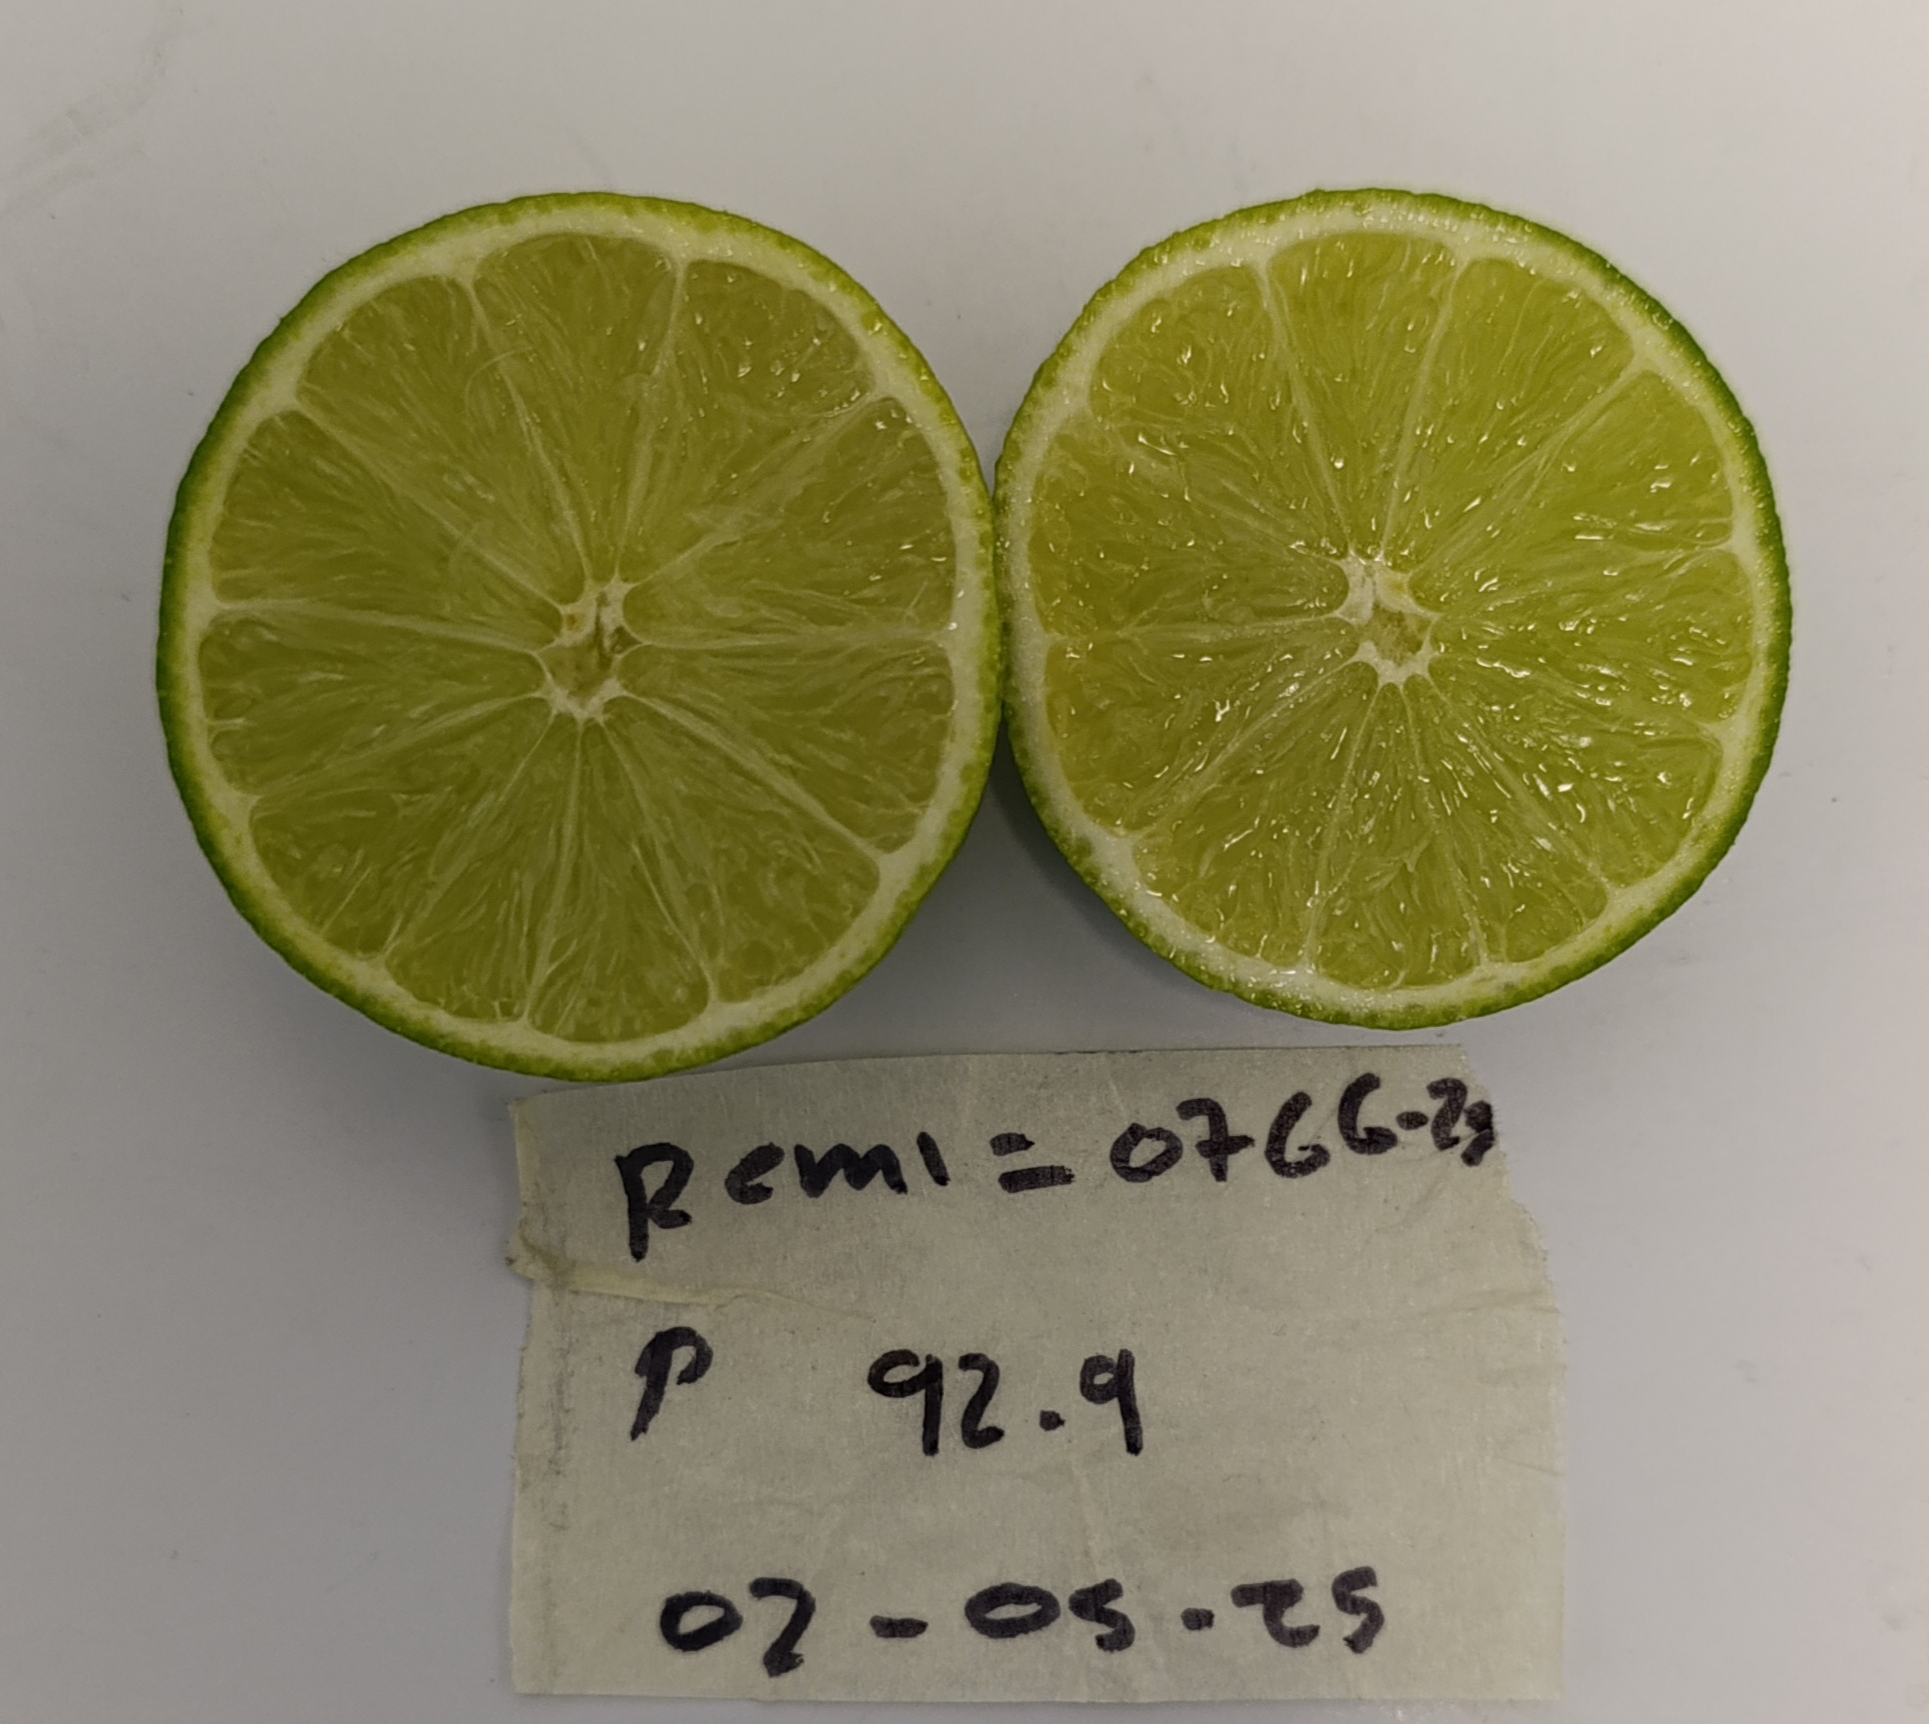 Remi = 0766-25
P 92.9
02-05-25